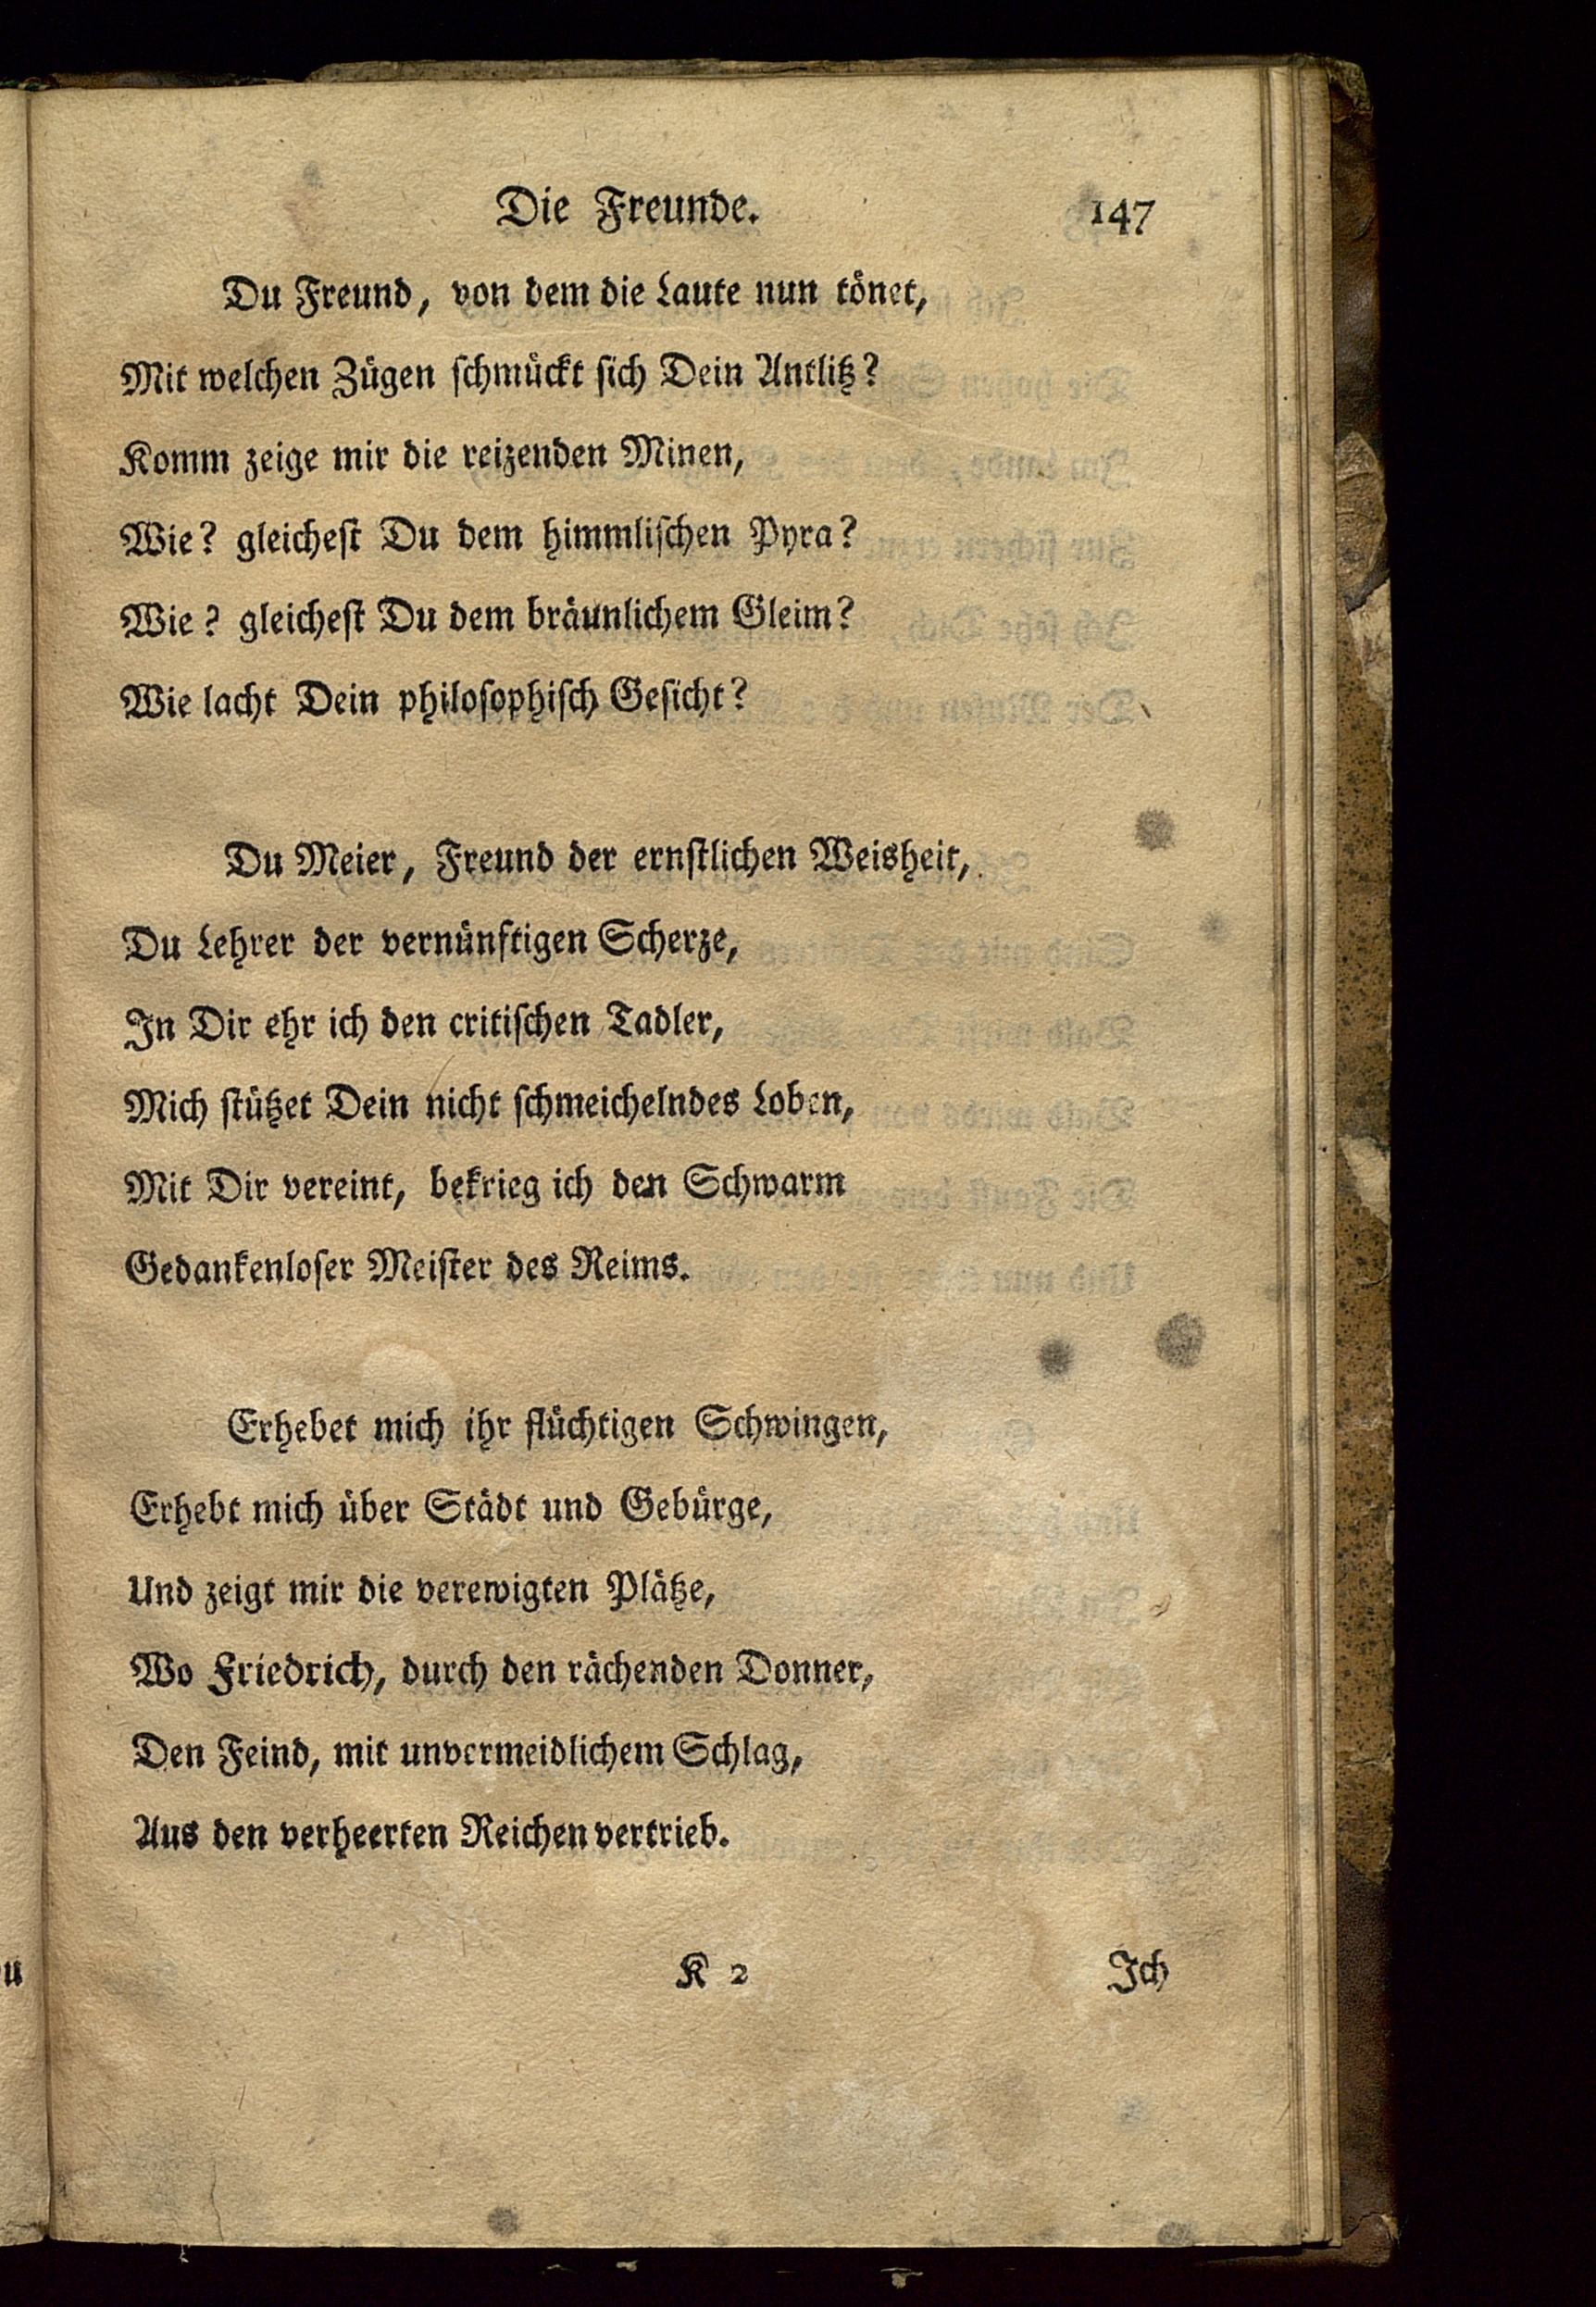 Die Freunde. 147
Du Freund, von dem die Laute nun tönet,
Mit welchen Zügen ſchmückt ſich Dein Antlitz?
Komm zeige mir die reizenden Minen,
Wie? gleicheſt Du dem himmliſchen Pyra?
Wie? gleicheſt Du dem bräunlichem Gleim?
Wie lacht Dein philoſophiſch Geſicht?
Du Meier, Freund der ernſtlichen Weisheit,
Du Lehrer der vernünftigen Scherze,
In Dir ehr ich den critiſchen Tadler,
Mich ſtützet Dein nicht ſchmeichelndes Loben,
Mit Dir vereint, bekrieg ich den Schwarm
Gedankenloſer Meiſter des Reims.
Erhebet mich ihr flüchtigen Schwingen,
Erhebt mich über Städt und Gebürge,
Und zeigt mir die verewigten Plätze,
Wo Friedrich, durch den rächenden Donner,
Den Feind, mit unvermeidlichem Schlag,
Aus den verheerten Reichen vertrieb.
K 2 Ich